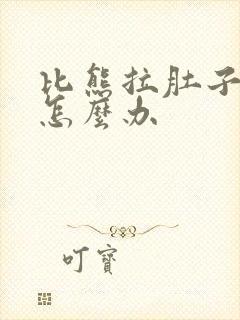 比熊拉肚子
怎麼办
叮寶